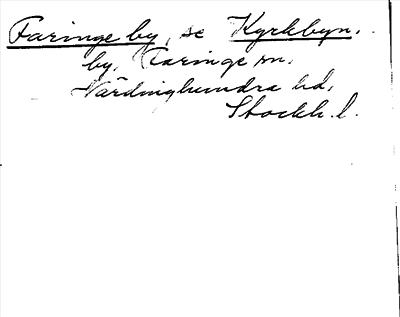 Faringe by, se Kyrkbyn,
by, Faringe sn,
Närdinghundra hd,
Stockh. l.